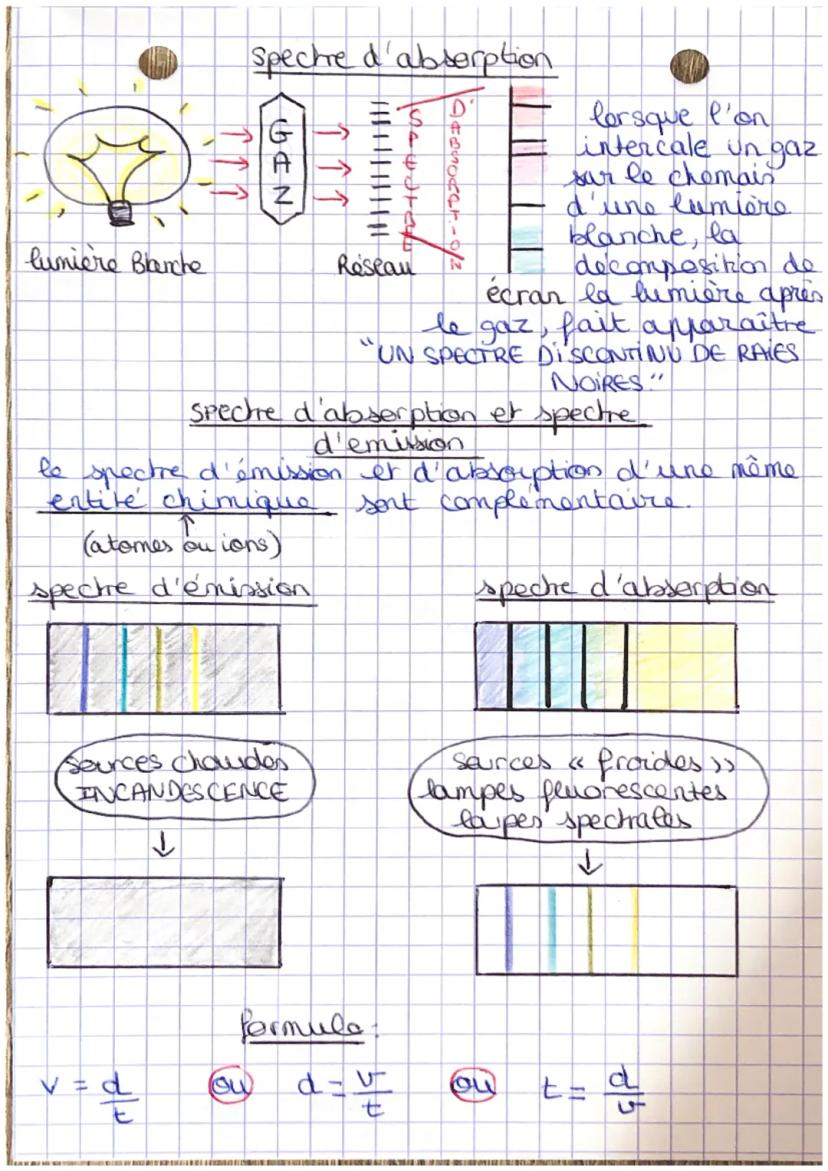 spectre d'absorption
GAZ
SPECTRE D'ABSORPTION
lumière Blanche
Réseau
écran
lorsque l'on
intercale un gaz
sur le chemais
d'une lumière
blanche, la
décomposition de
la lumière après
le gaz, fait apparaître
"UN SPECTRE DISCONTINU DE RAIES
NOIRES."
spectre d'absorption et spectre
d'emission
le spectre d'émission et d'absorption d'une même
entité chimique sont complémentaire.
(atomes ou ions)
spectre d'émission
spectre d'absorption
sources chaudes
INCANDESCENCE
sources « froides »
lampes fluorescentes
lampes spectrales
formule :
v = d/t ou d = v/t ou t = d/v